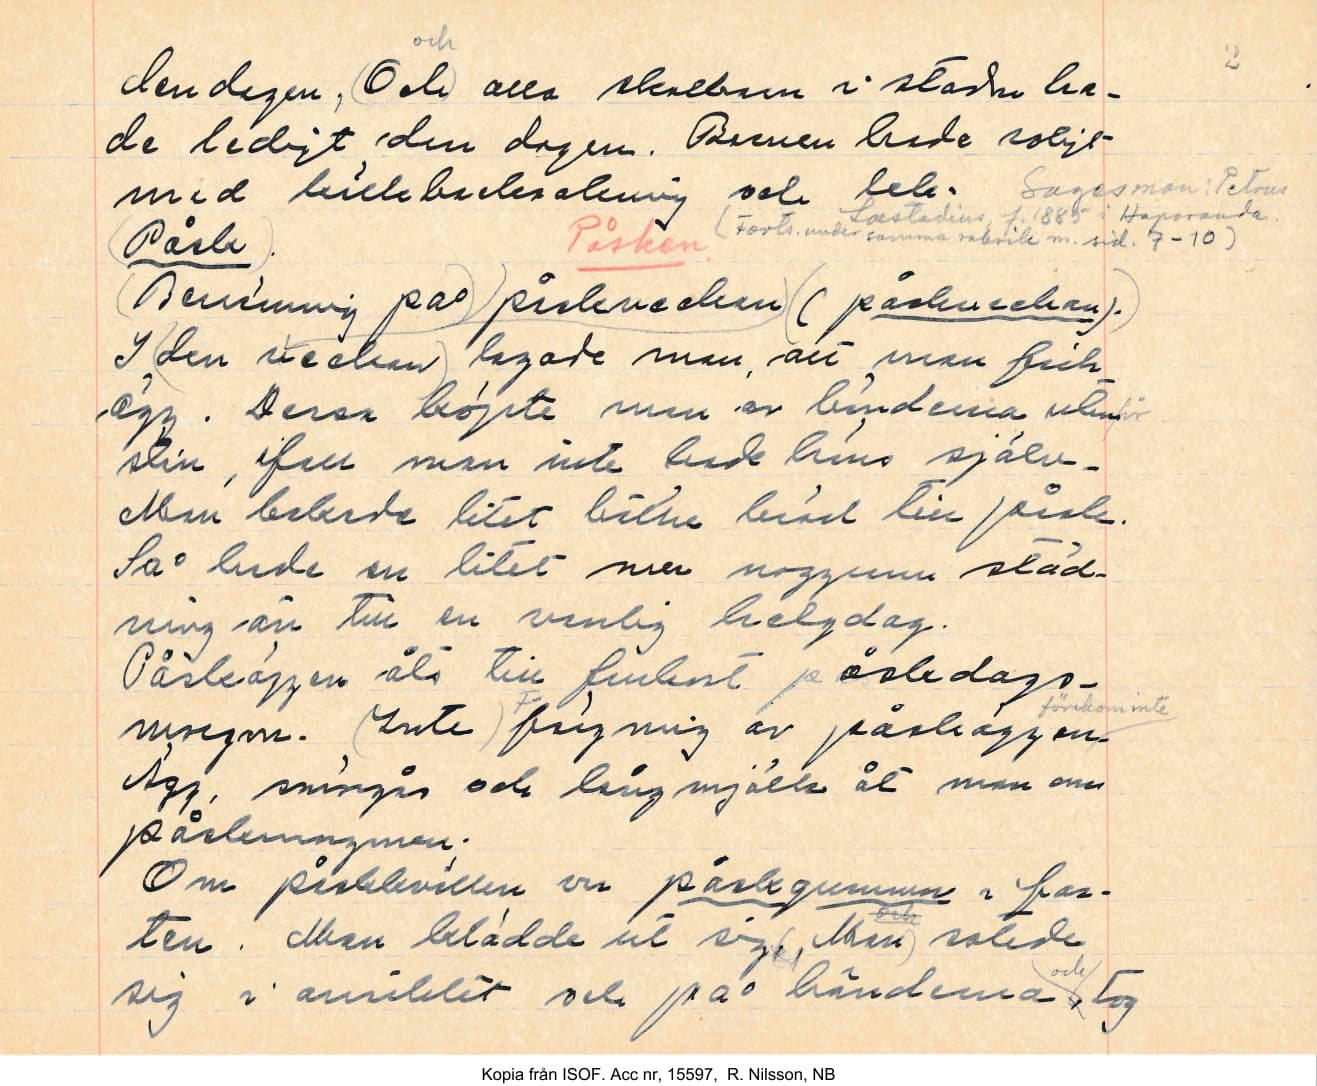 och
2
den dagen, (Och) alla skolbarn i staden ha-
de ledigt den dagen. Barnen hade roligt
med kälkbacksåkning och lek.
Sagesman: Petrus
Læstadius, f. 1885 i Haparanda.
(Påsk).
Påsken.
(Forts. under samma rubrik m. sid. 7-10)
(Benämning på) påskveckan (( påskveckan).)
I (den veckan) lagade man, att man fick
ägg. Dessa köpte man av bönderna utanför
stan, ifall man inte hade höns själv.
Man bakade litet bättre bröd till påsk.
Så hade en litet mer noggrann städ-
ning än till en vanlig helgdag.
Påskäggen åts till frukost påskdags-
förekom inte
morgon. (Inte) F färgning av påskäggen.
Ägg, smörgås och långmjölk åt man om
påskmorgonen.
Om påskkvällen var påskgumman i far-
och
ten. Man klädde ut sig, (Man) sotade
och
sig i ansiktet och på händerna, tog
Kopia från ISOF. Acc nr, 15597, R. Nilsson, NB